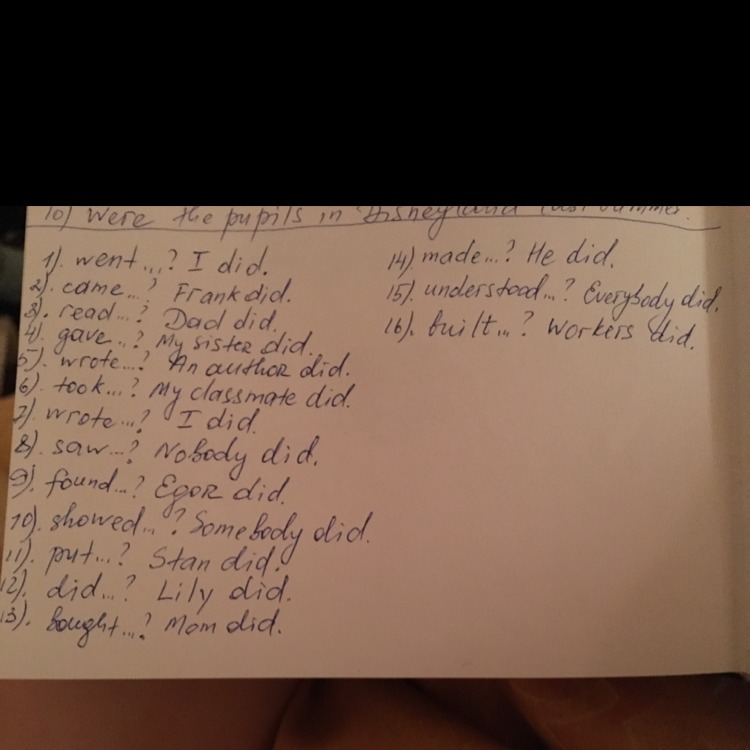 10) Were the pupils in Disneyland last summer.
1). went...? I did.
2). came...? Frank did.
3). read...? Dad did.
4). gave...? My sister did.
5). wrote...? An author did.
6). took...? My classmate did.
7). wrote...? I did.
8). saw...? Nobody did.
9). found...? Egor did.
10). showed...? Somebody did.
11). put...? Stan did.
12). did...? Lily did.
13). bought...? Mom did.
14). made...? He did.
15). understood...? Everybody did.
16). built...? Workers did.